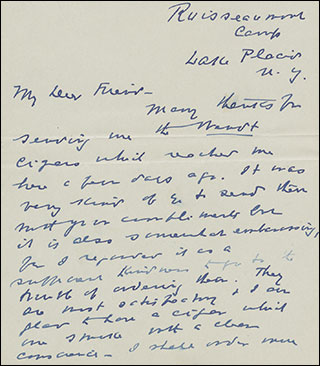 Ruisseaumont
Camp
Lake Placid
N.Y.
My Dear Friend –
Many thanks for
sending me the
cigars which reached me
here a few days ago. It was
very kind of to send them
with your compliments but
it is also somewhat embarrassing,
for I regarded it as a
sufficient kindness to go to the
trouble of ordering them. They
are most satisfactory & I am
glad to have a cigar which
one smoke with a clear
conscience – I shall order more